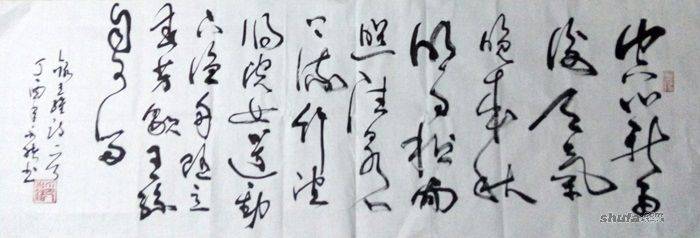 空山新雨
後天氣
晚來秋
明月松間
照清泉石
上流竹喧
歸浣女蓮動
下漁舟隨意
春芳歇王孫
自可留
錄王維詩一首
丁酉年 書